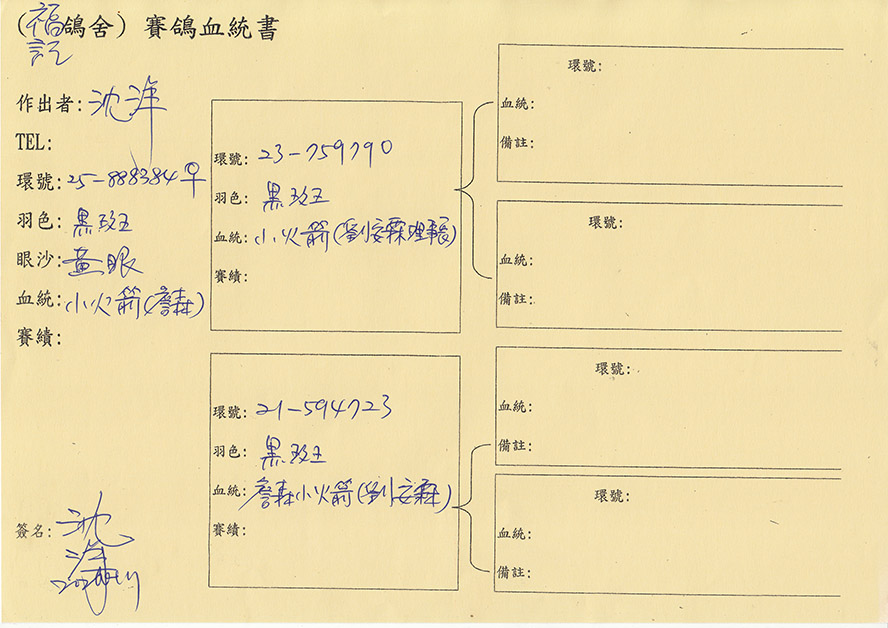 (福記鴿舍) 賽鴿血統書
作出者: 沈洋
TEL:
環號: 25-888384 ♀
羽色: 黑斑
眼沙: 黃眼
血統: 小火箭(詹森)
賽績:
簽名: 沈洋
環號: 23-759790
羽色: 黑斑
血統: 小火箭(劉安霖理事長)
賽績:
環號: 21-594723
羽色: 黑斑
血統: 詹森小火箭(劉安霖)
賽績:
環號:
血統:
備註:
環號:
血統:
備註:
環號:
血統:
備註:
環號:
血統:
備註: